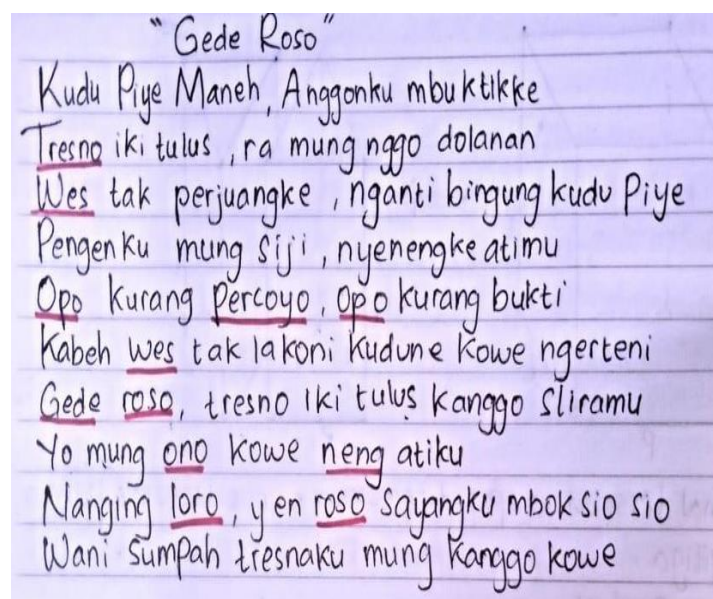 "Gede Roso"
Kudu Piye Maneh, Anggonku mbuktikke
Tresno iki tulus, ra mung nggo dolanan
Wes tak perjuangke, nganti bingung kudu Piye
Pengenku mung siji, nyenengke atimu
Opo kurang Percoyo, opo kurang bukti
Kabeh wes tak lakoni kudune kowe ngerteni
Gede roso, tresno iki tulus kanggo sliramu
Yo mung ono kowe neng atiku
Nanging loro, yen roso sayangku mbok sio sio
Wani sumpah tresnaku mung kanggo kowe